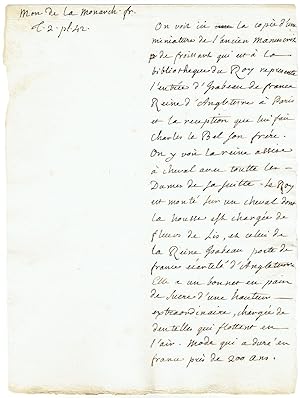 Mon de la Monarch. fr.
t. 2. pl 42
On voit ici la copie d'une
miniature de l'ancien Manuscrit
de froissard qui est à la
bibliotheque du Roy represente
l'entrée d'Isabeau de france
Reine d'Angleterre à Paris
et la reception que lui fait
Charles le Bel son frère.
On y voit la reine assise
à cheval avec toutte les
Dames de sa suitte. Le Roy
est monté sur un cheval dont
la housse est chargée de
fleurs de Lis, et celui de
la Reine Isabeau porte de
france écartelé d'Angleterre
Elle a un bonnet en pain
de sucre d'une hauteur
extraordinaire, chargée de
dentelles qui flottent en
l'air. Mode qui a duré en
france près de 200 ans.